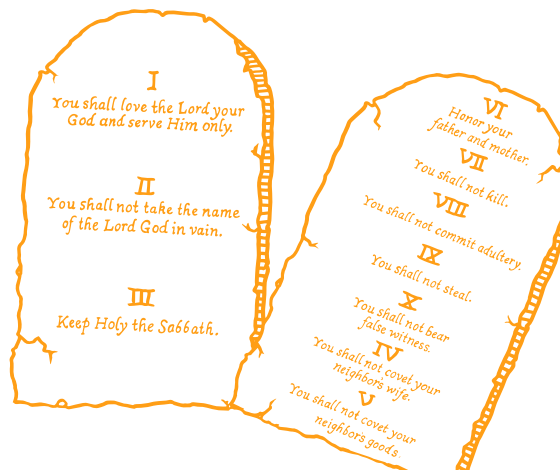 I
You shall love the Lord your
God and serve Him only.
II
You shall not take the name
of the Lord God in vain.
III
Keep Holy the Sabbath.
VI
Honor your
father and mother.
VII
You shall not kill.
VIII
You shall not commit adultery.
IX
You shall not steal.
X
You shall not bear
false witness.
IV
You shall not covet your
neighbor's wife.
V
You shall not covet your
neighbor's goods.